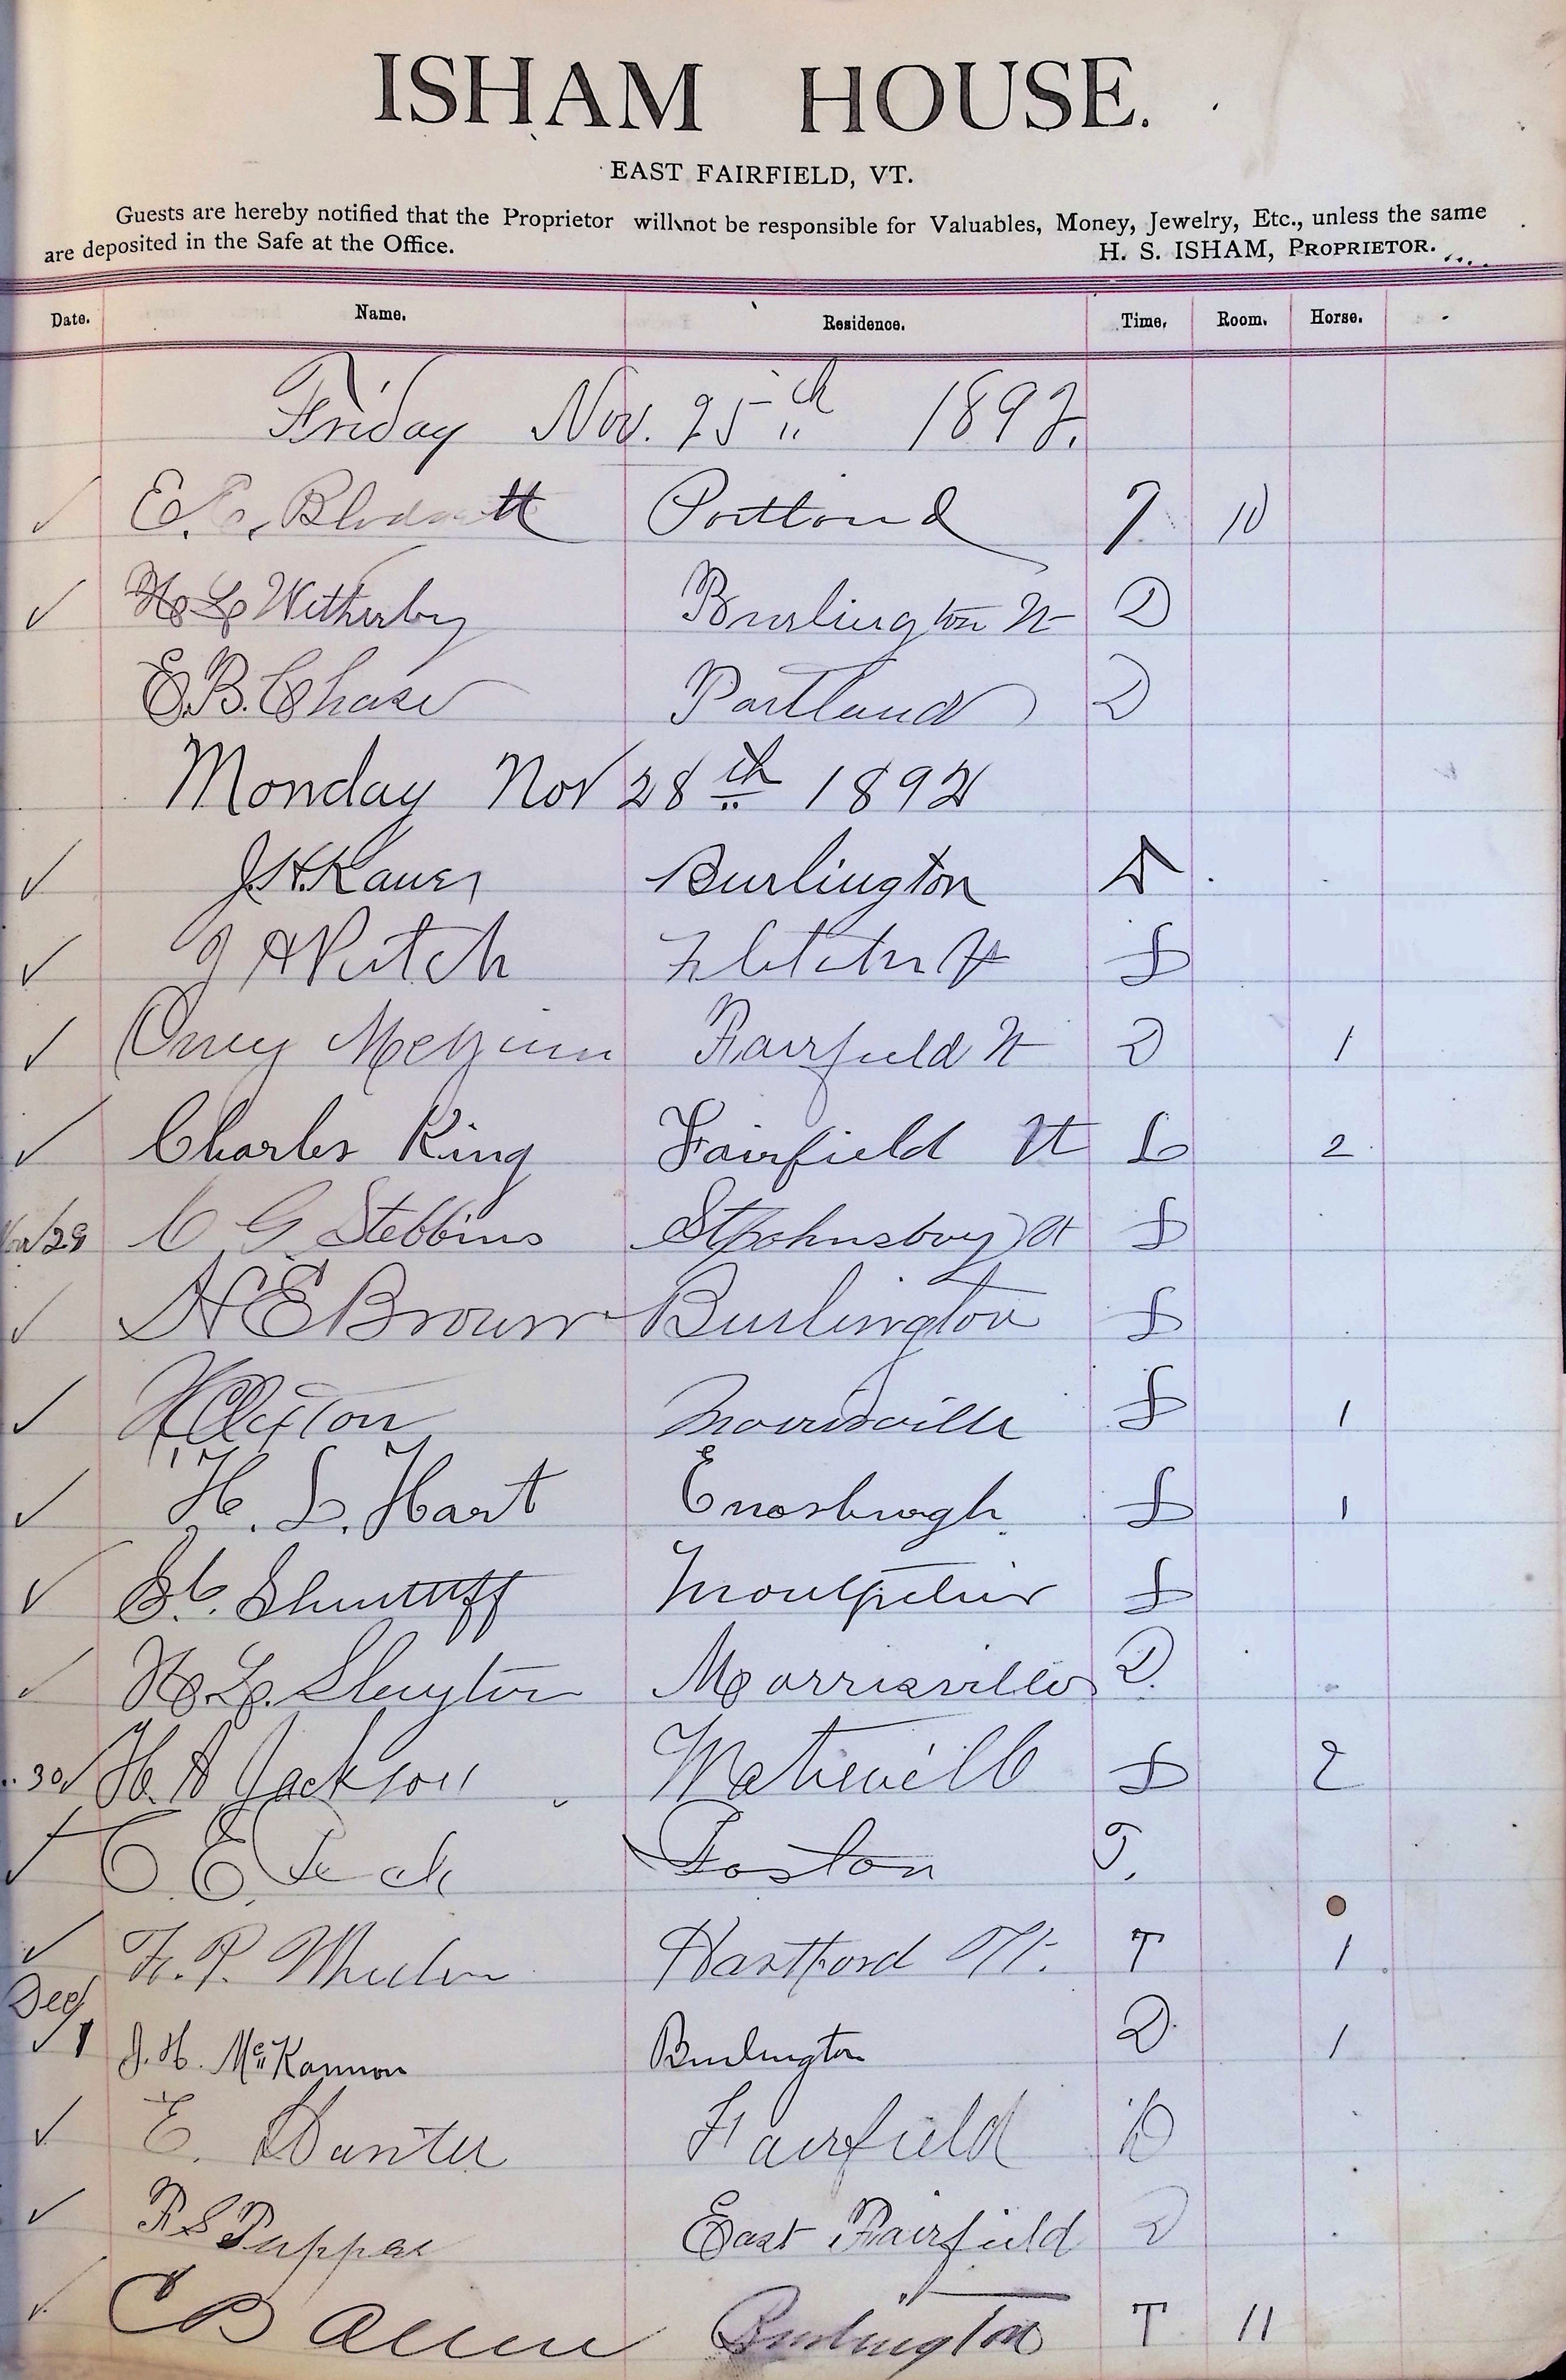 ISHAM HOUSE.
EAST FAIRFIELD, VT.
Guests are hereby notified that the Proprietor will not be responsible for Valuables, Money, Jewelry, Etc., unless the same
are deposited in the Safe at the Office. H. S. ISHAM, PROPRIETOR.
Date. Name. Residence. Time. Room. Horse.
Friday Nov. 25th 1892.
E. E. Blodgett Portland T 10
H L Witherby Burlington Vt D
E.B. Chase Portland D
Monday Nov 28th 1892
J.H. Burlington D
J A Burlington S
Fairfield Vt D 1
Charles King Fairfield Vt L 2
Nov 29 C G Stebbins St Johnsbury Vt S
H E Brown Burlington S
Morrisville S 1
H. L. Hart Enosburgh S 1
Montpelier S
H. L. Slayton Morrisville D
30 H. A Jackson S 2
C. E. Peck Boston T.
F. P. Wheeler Hartford Vt. T 1
Dec 1 J. H. McKannon Burlington D 1
E. Hunter Fairfield D
East Fairfield D
C B Allen Burlington T 11